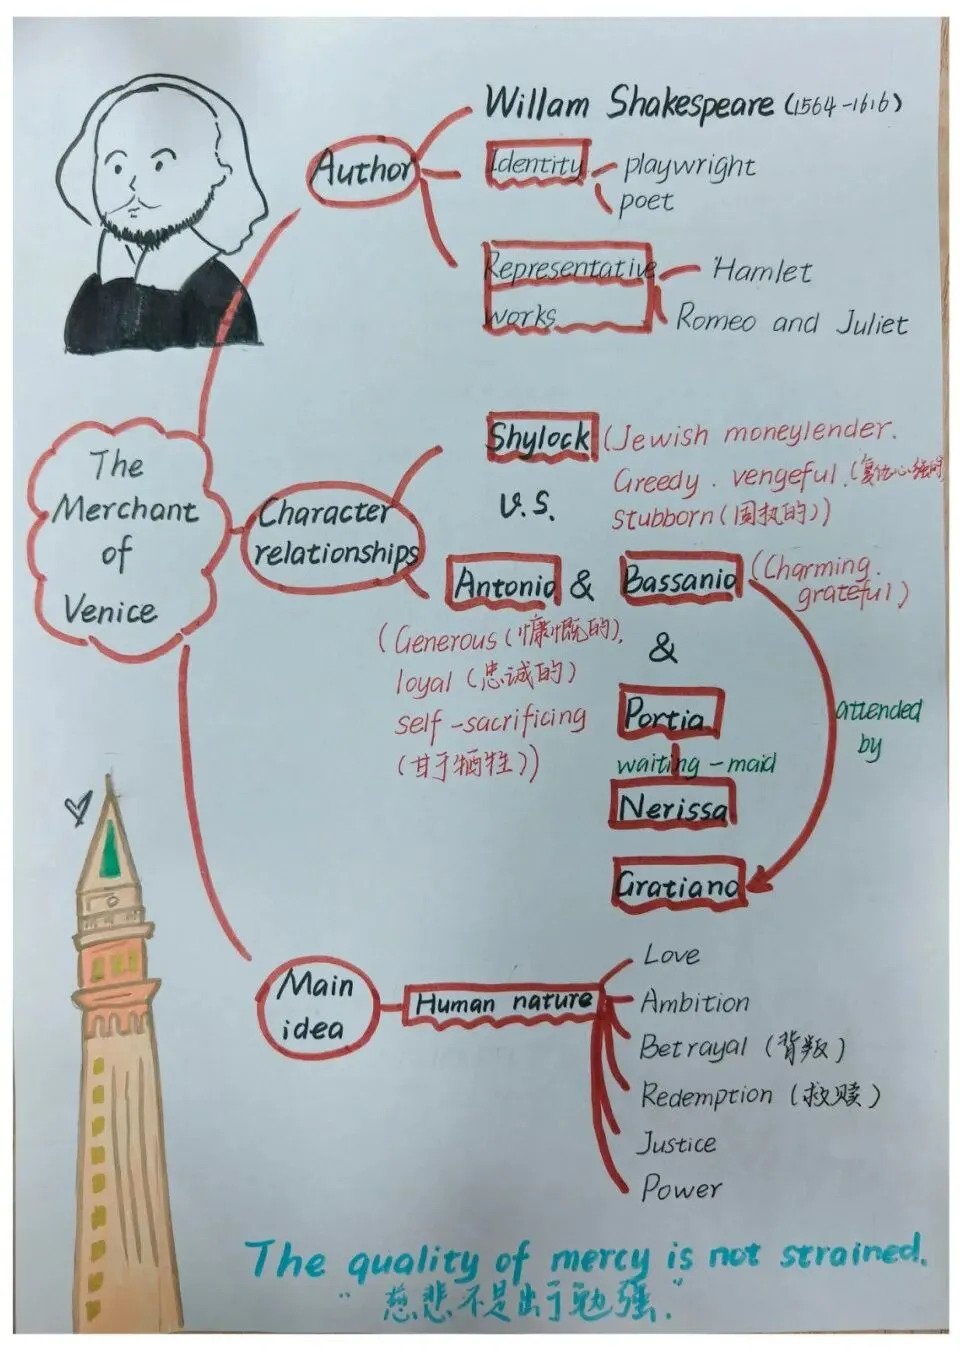 Willam Shakespeare (1564-1616)
Author
Identity
playwright
poet
Representative
works
Hamlet
Romeo and Juliet
The
Merchant
of
Venice
Character
relationships
Shylock (Jewish moneylender.
Greedy. vengeful.(复仇心强的)
stubborn(固执的))
V.S.
Antonio & Bassanio (Charming.
grateful)
(Generous(慷慨的),
loyal (忠诚的)
self-sacrificing
(甘于牺牲))
&
Portia
attended
by
waiting-maid
Nerissa
Gratiano
Main
idea
Human nature
Love
Ambition
Betrayal (背叛)
Redemption (救赎)
Justice
Power
The quality of mercy is not strained.
"慈悲不是出于勉强."